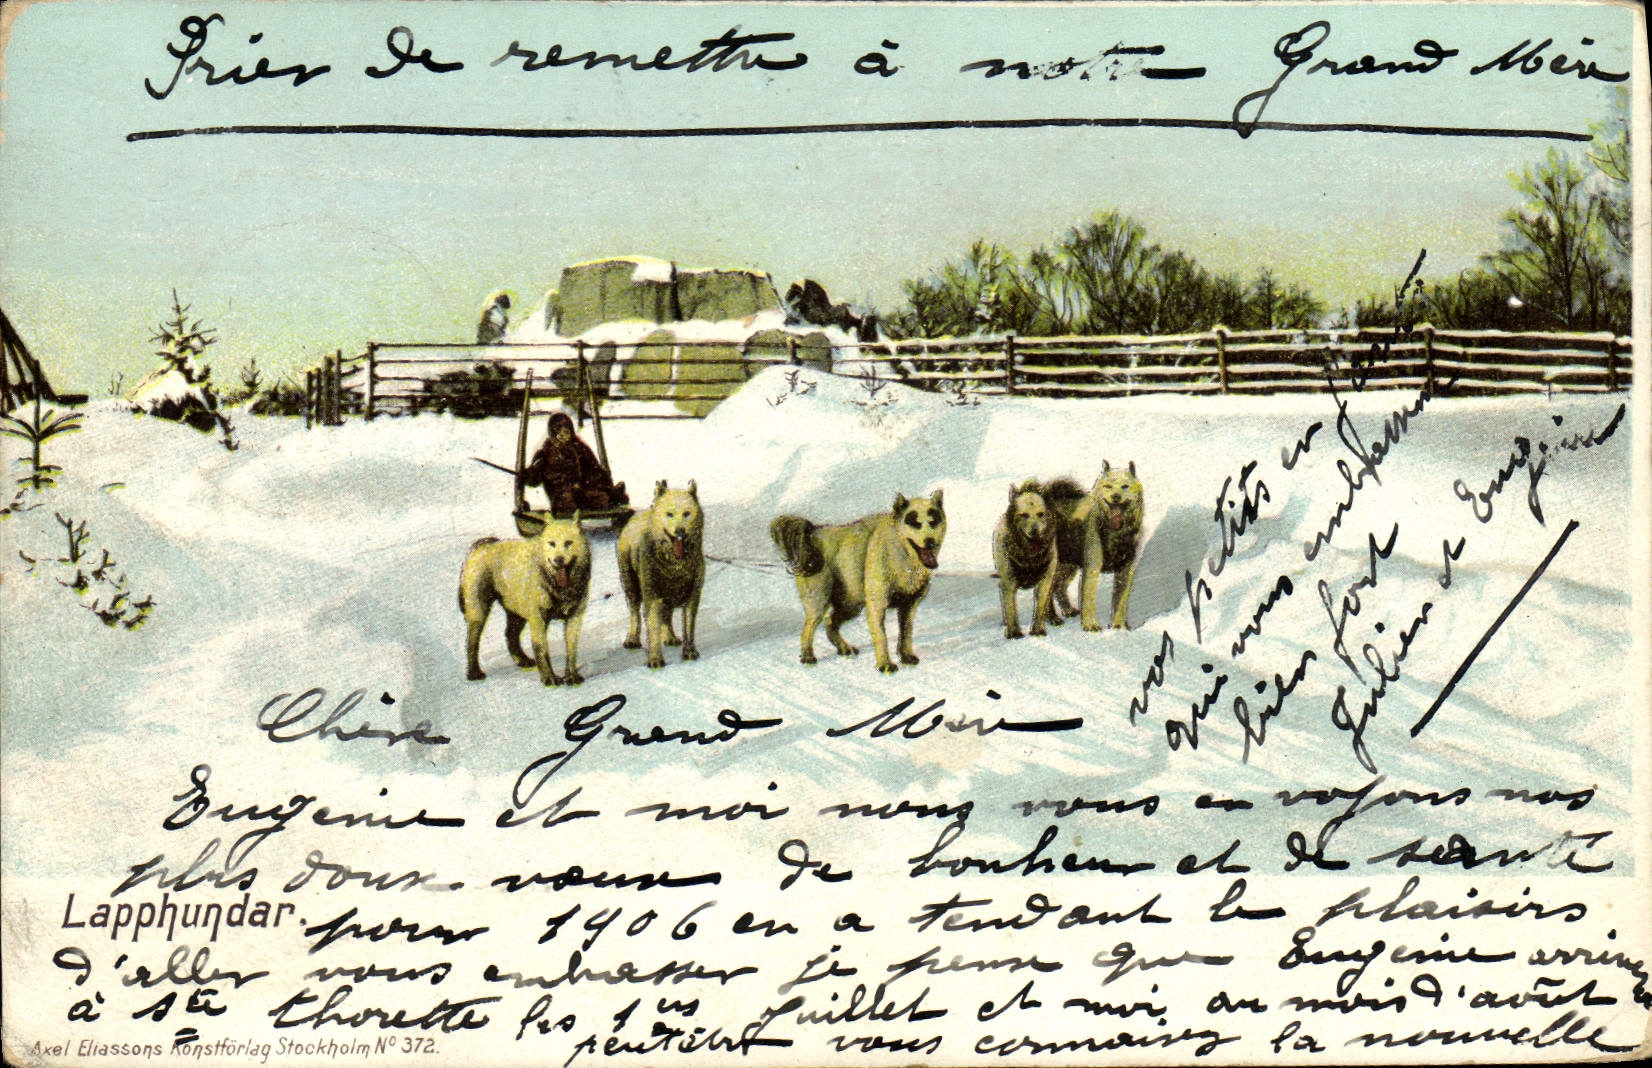 Prier de remettre à notre Grand Mère
Chère Grand Mère
Eugenie et moi nous vous en voyons nos
plus doux vœux de bonheur et de santé
pour 1906 en a tendant le plaisirs
d'aller vous embrasser je pense que Eugenie arrivera
à Ste thorette les 1ers Juillet et moi au mois d'août
peutêtre vous connaisez la nouvelle
vos petits en
qui vous embrassent
bien fort
Julien et Eugénie
Lapphundar.
Axel Eliassons Konstförlag Stockholm No 372.